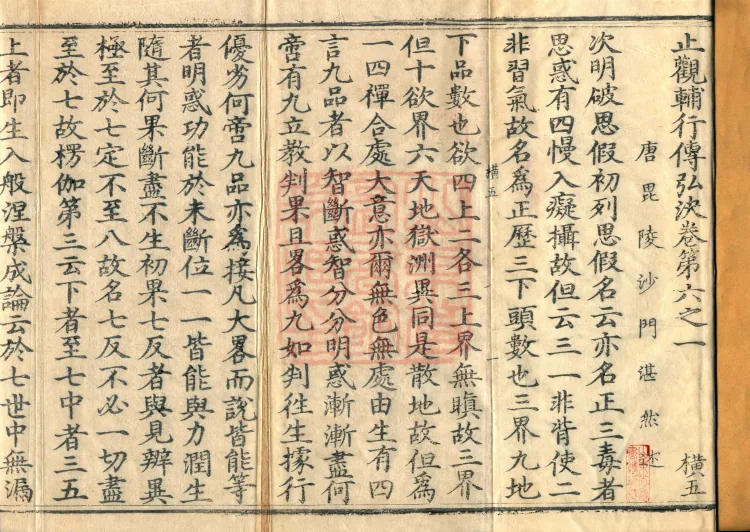 止觀輔行傳弘決卷第六之一 橫五
唐毘陵沙門湛然述
次明破思假初列思假名云亦名正三毒者
思惑有四慢入癡攝故但云三一非背使二
非習氣故名為正歷三下頭數也三界九地
橫五 一
下品數也欲四上二各三上界無瞋故三界
但十欲界六天地獄洲異同是散地故但為
一四禪合處大意亦爾無色無處由生有四
言九品者以智斷惑智分分明惑漸漸盡何
啻有九立教判果且畧為九如判往生據行
優劣何啻九品亦為接凡大畧而說皆能等
者明惑功能於未斷位一一皆能與力潤生
隨其何果斷盡不生初果七反者與見辨異
極至於七定不至八故名七反不必一切盡
至於七故楞伽第三云下者至七中者三五
上者即生入般涅槃成論云於七世中無漏